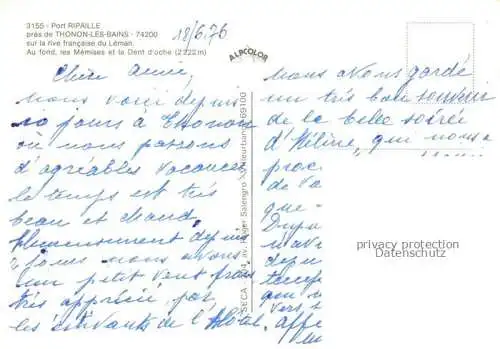 3155 - Port RIPAILLE
près de THONON-LES-BAINS - 74200
sur la rive française du Léman.
Au fond, les Mémises et la Dent d'oche (2222m)
18/6.76
ALPCOLOR
Chère Amie,
Nous voici depuis
10 jours à Thonon
où nous passons
d'agréables vacances
le temps est très
beau et chaud,
depuis
2 jours nous avons
un petit vent frais
très apprécié par
les estivants de l'Hôtel,
SECA - av. Roger Salengro Villeurbanne 69100
Nous avons gardé
un très bon souvenir
de la belle soirée
d'Hélène, que nous a
proc
de va
que
Dupu
mat
depu
terr
que
vers
affe
privacy protection
Datenschutz